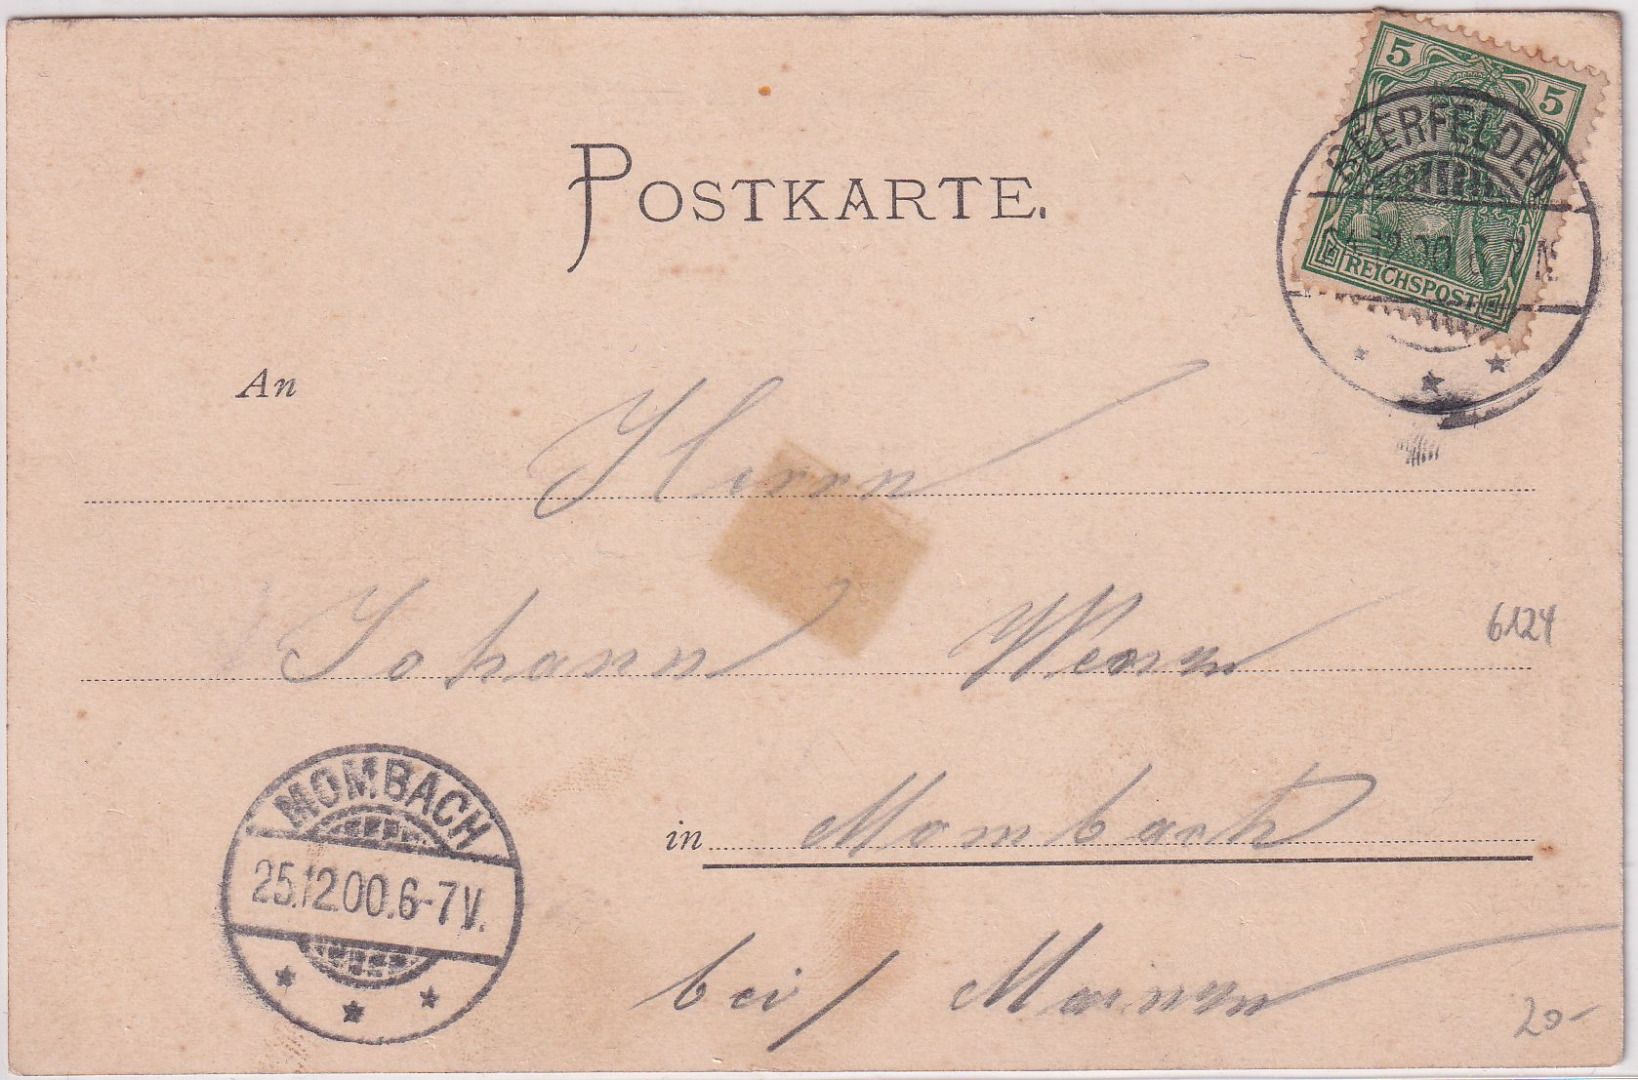 POSTKARTE.
5 5
BEERFELDEN
12.00 6-7 N
REICHSPOST
An Herrn
Johann
6124
MOMBACH
25.12.00.6-7V.
in Mombach
bei /
20-